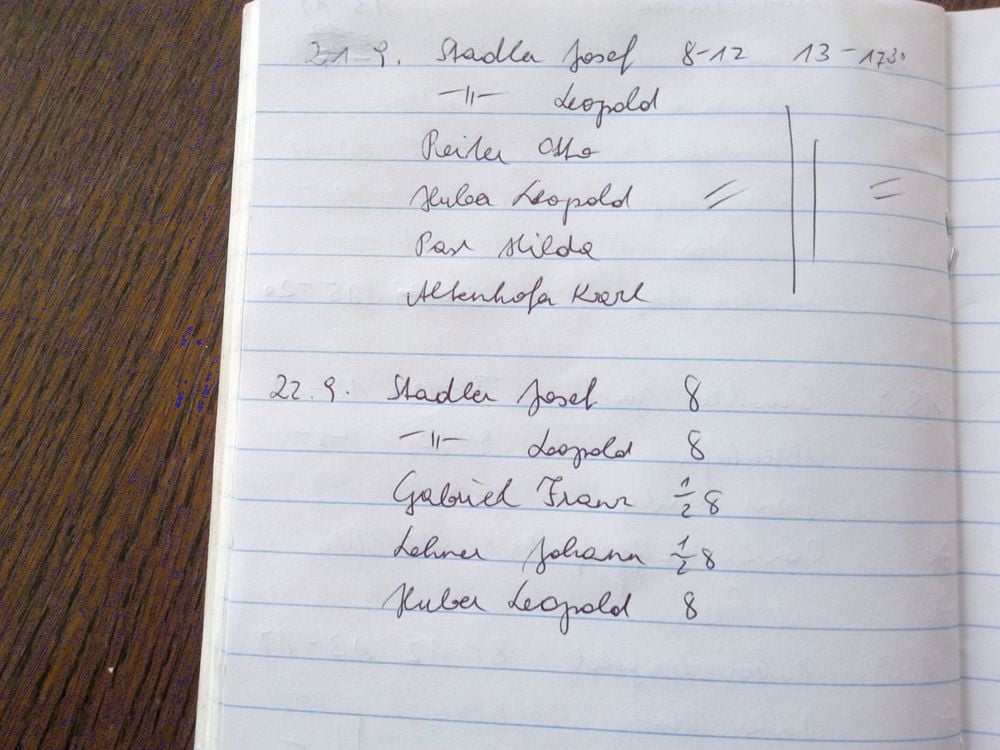 21-9. Stadler Josef 8-12 13-1730
-〃- Leopold
Reiter Otto
Huber Leopold
Hilda
Altenhofer Karl
22.9. Stadler Josef 8
-〃- Leopold 8
Gabriel Franz 1/2 8
Lehner Johann 1/2 8
Huber Leopold 8